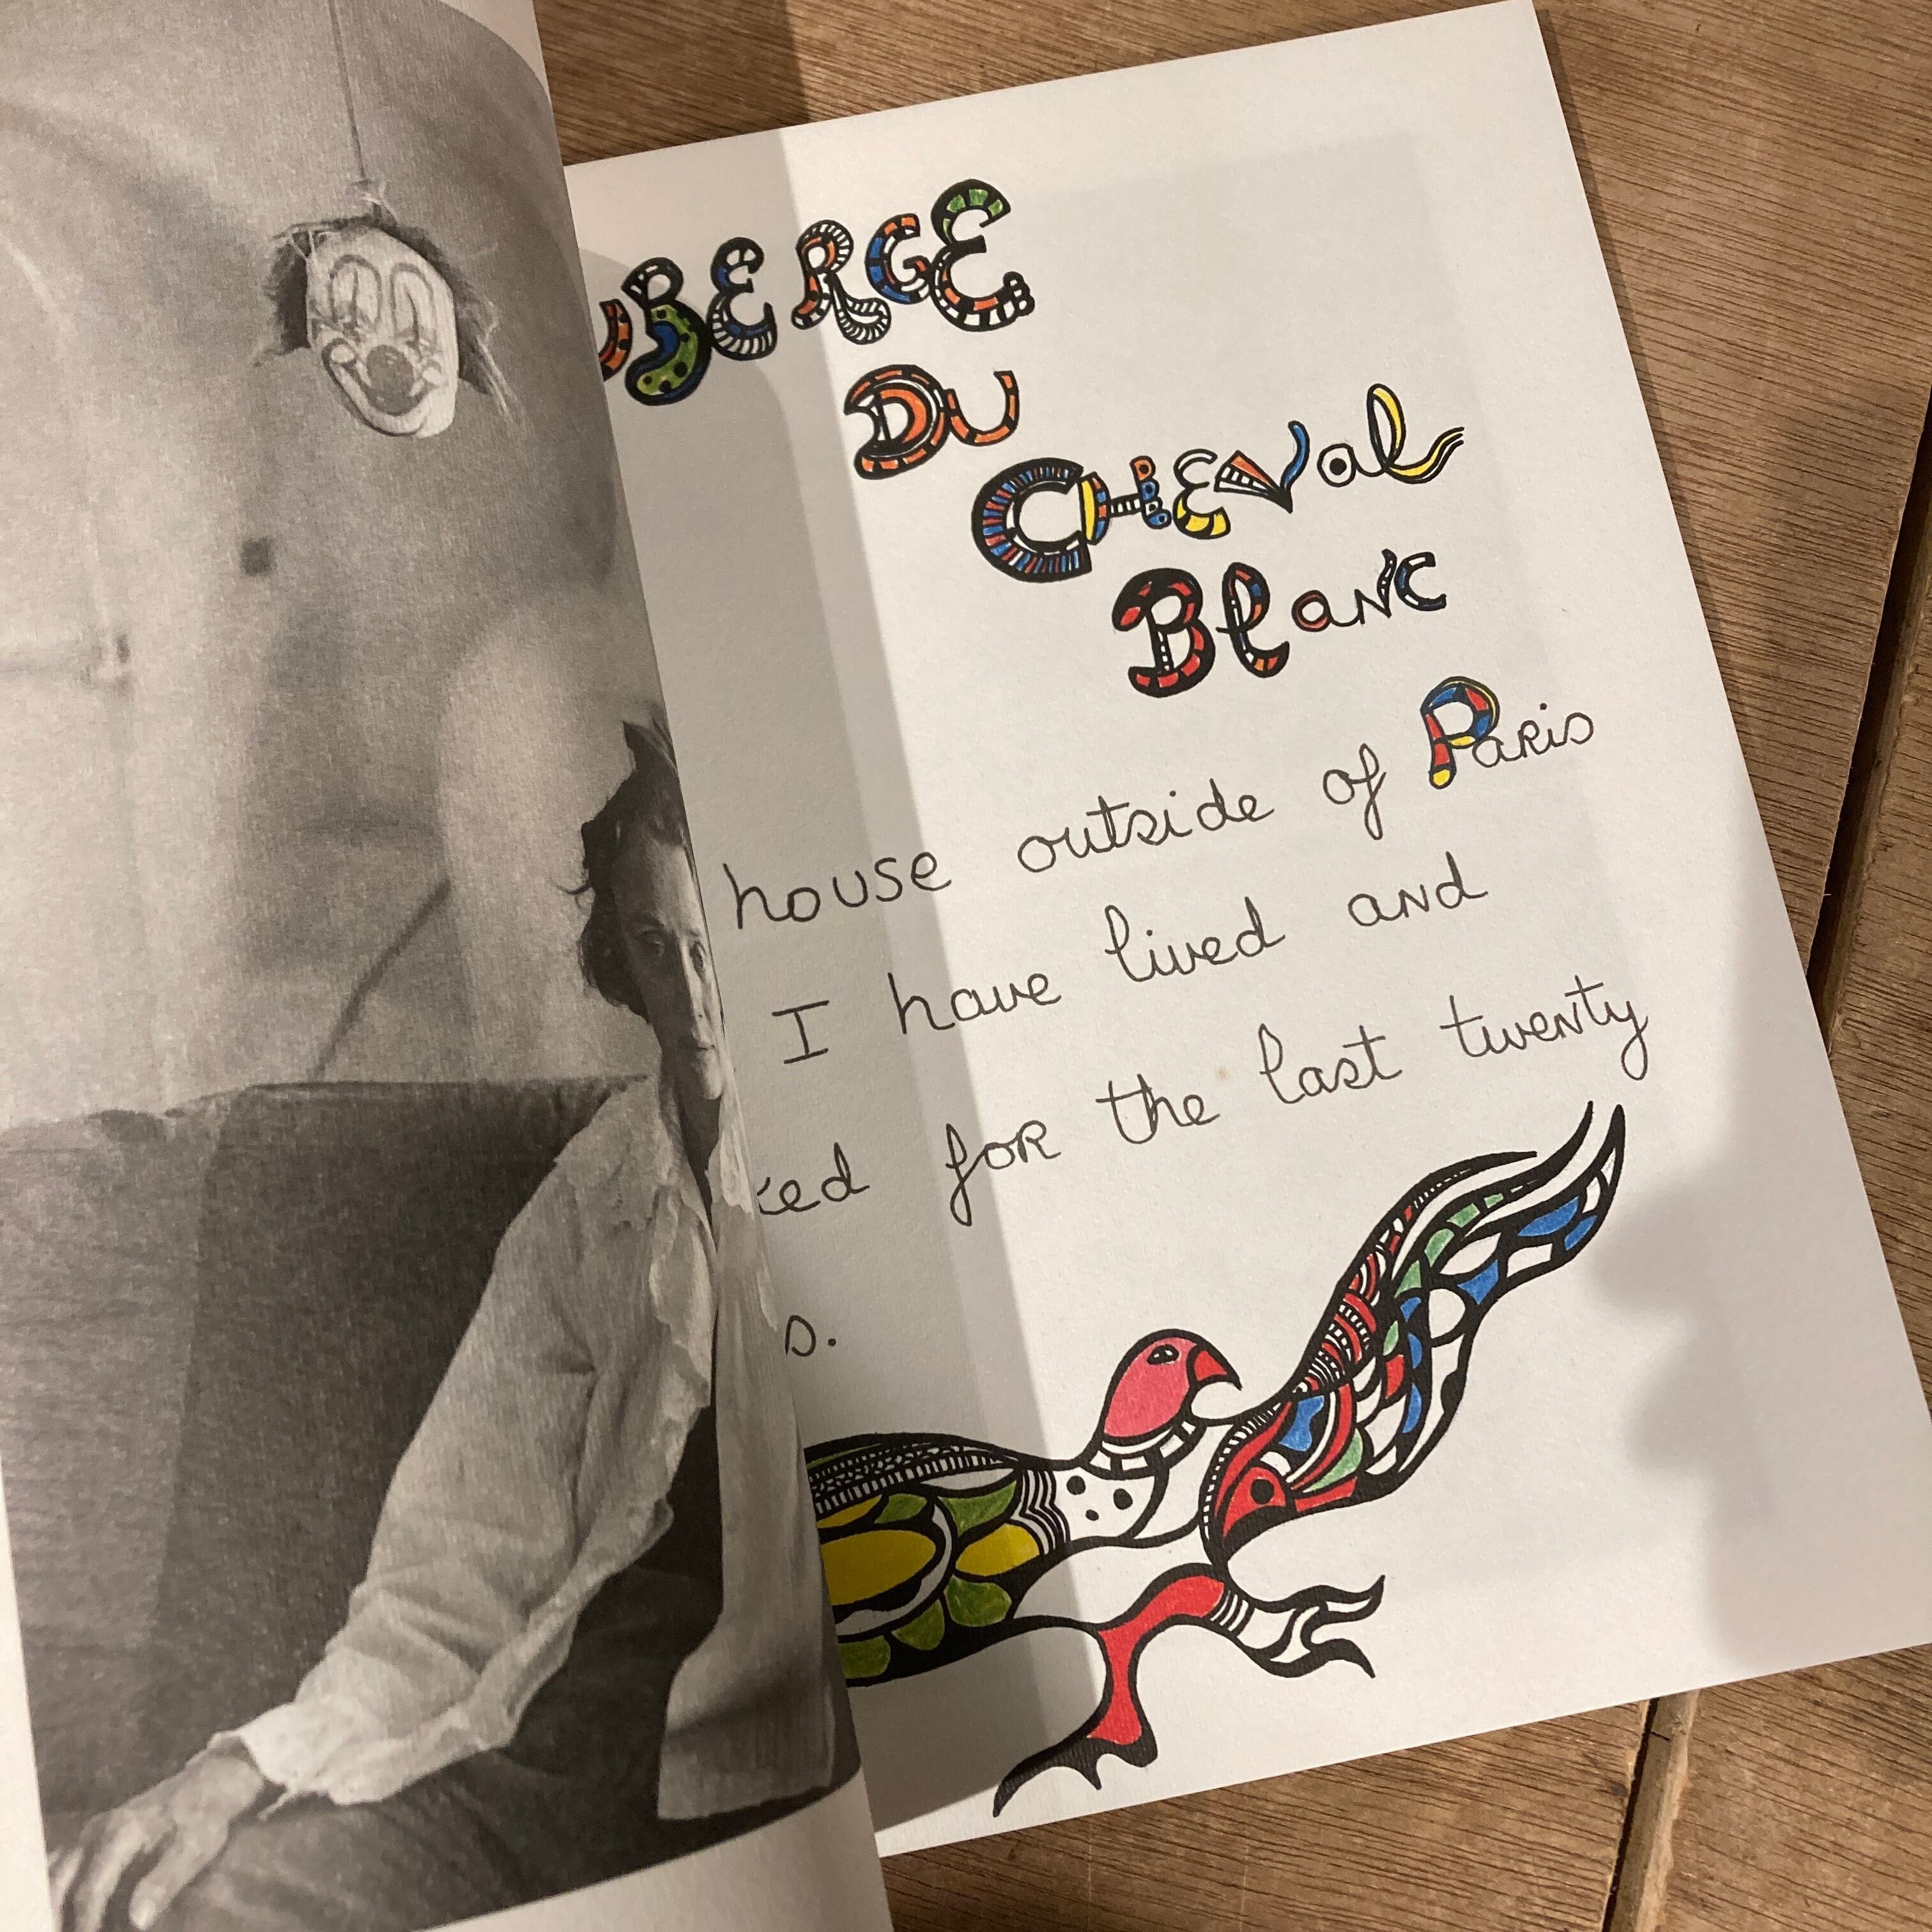 UBERGE
DU
CHEVal
BlaNC
house outside of Paris
I have lived and
for the last twenty